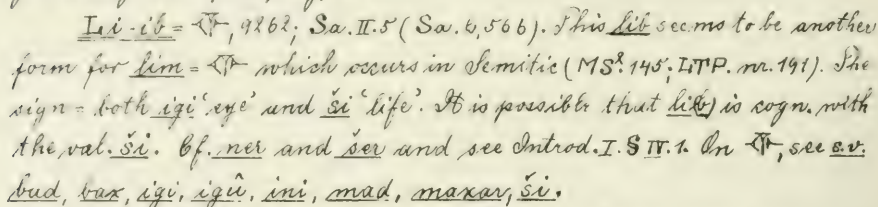 Li-ib = 𒅆, 9262; Sa. II. 5 (Sa. 6, 566). This lib seems to be another
form for lim = 𒅆 which occurs in Semitic (MS². 145; LTP. nr. 191). The
sign = both igi 'eye' und ši 'life'. It is possible that li(b) is cogn. with
the val. ši. Cf. ner and šer and see Introd. I. § IV. 1. On 𒅆, see s.v.
bud, bax, igi, igû, ini, mad, maxar, ši.